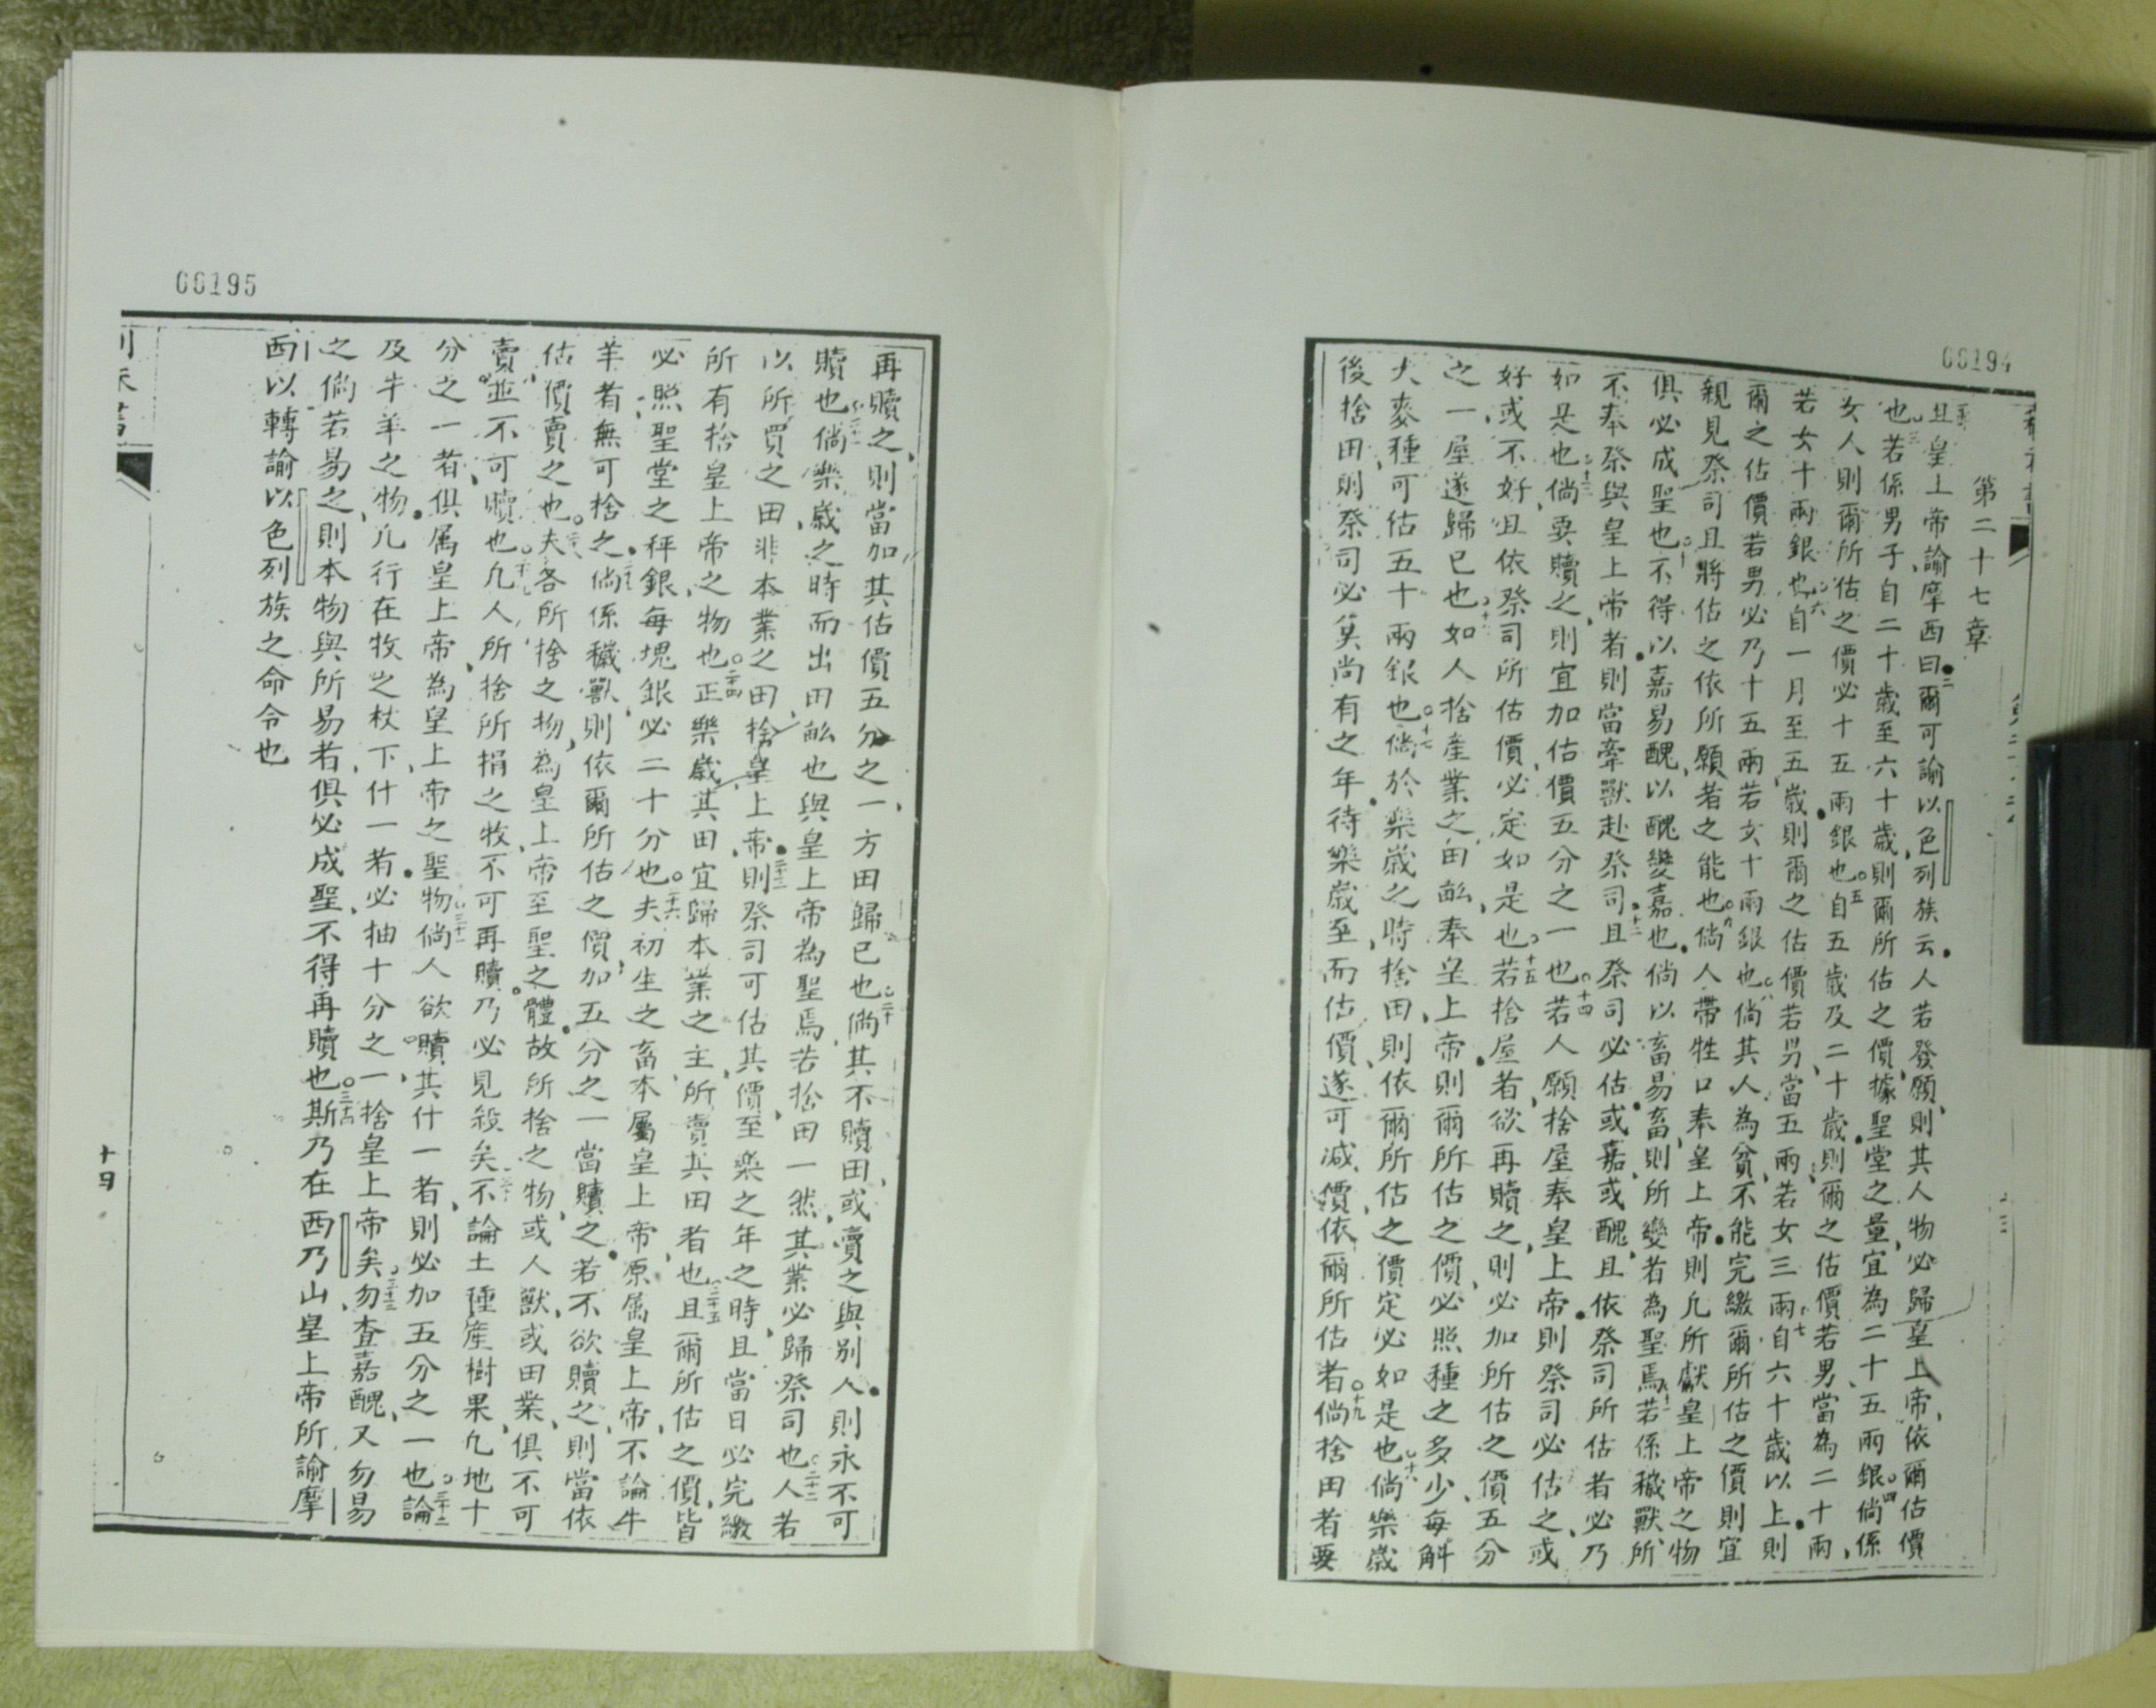 06194
第二十七章
且皇上帝諭摩西曰二爾可諭以色列族云人若發願則其人物必歸皇上帝依爾估價
也三若係男子自二十歲至六十歲則爾所估之價據聖堂之量宜為二十五兩銀四倘係
女人則爾所估之價必十五兩銀也五自五歲及二十歲則爾之估價若男當為二十兩
若女十兩銀也六自一月至五歲則爾之估價若男當五兩若女三兩七自六十歲以上則
爾之估價若男必乃十五兩若女十兩銀也八倘其人為貧不能完繳爾所估之價則宜
親見祭司且將估之依所願者之能也九倘人帶牲口奉皇上帝則凡所獻皇上帝之物
俱必成聖也十不得以嘉易醜以醜變嘉也倘以畜易畜則所變者為聖焉十一若係穢獸所
不奉祭與皇上帝者則當牽獸赴祭司十二且祭司必估或嘉或醜且依祭司所估者必乃
如是也十三倘要贖之則宜加估價五分之一也十四若人願捨屋奉皇上帝則祭司必估之或
好或不好且依祭司所估價必定如是也十五若捨屋者欲再贖之則必加所估之價五分
之一屋遂歸已也十六如人捨產業之田畝奉皇上帝則爾所估之價必照種之多少每斛
大麥種可估五十兩銀也十七倘於樂歲之時捨田則依爾所估之價定必如是也十八倘樂歲
後捨田則祭司必算尚有之年待樂歲至而估價遂可減價依爾所估者十九倘捨田者要
06195
再贖之則當加其估價五分之一方田歸已也二十倘其不贖田或賣之與別人則永不可
贖也二十一倘樂歲之時而出田畝也與皇上帝為聖焉若捨田一然其業必歸祭司也二十二人若
以所買之田非本業之田捨皇上帝二十三則祭司可估其價至樂之年之時且當日必完繳
所有捨皇上帝之物也二十四正樂歲其田宜歸本業之主所賣其田者也二十五且爾所估之價皆
必照聖堂之秤銀每塊銀必二十分也二十六夫初生之畜本屬皇上帝原属皇上帝不論牛
羊者無可捨之二十七倘係穢獸則依爾所估之價加五分之一當贖之若不欲贖之則當依
估價賣之也二十八夫各所捨之物為皇上帝至聖之體故所捨之物或人獸或田業俱不可
賣並不可贖也二十九凡人所捨所捐之牧不可再贖乃必見殺矣三十不論土種產樹果凡地十
分之一者俱属皇上帝為皇上帝之聖物三十一倘人欲贖其什一者則必加五分之一也三十二論
及牛羊之物凡行在牧之杖下什一者必抽十分之一捨皇上帝矣三十三勿查嘉醜又勿易
之倘若易之則本物與所易者俱必成聖不得再贖也三十四斯乃在西乃山皇上帝所諭摩
西以轉諭以色列族之命令也